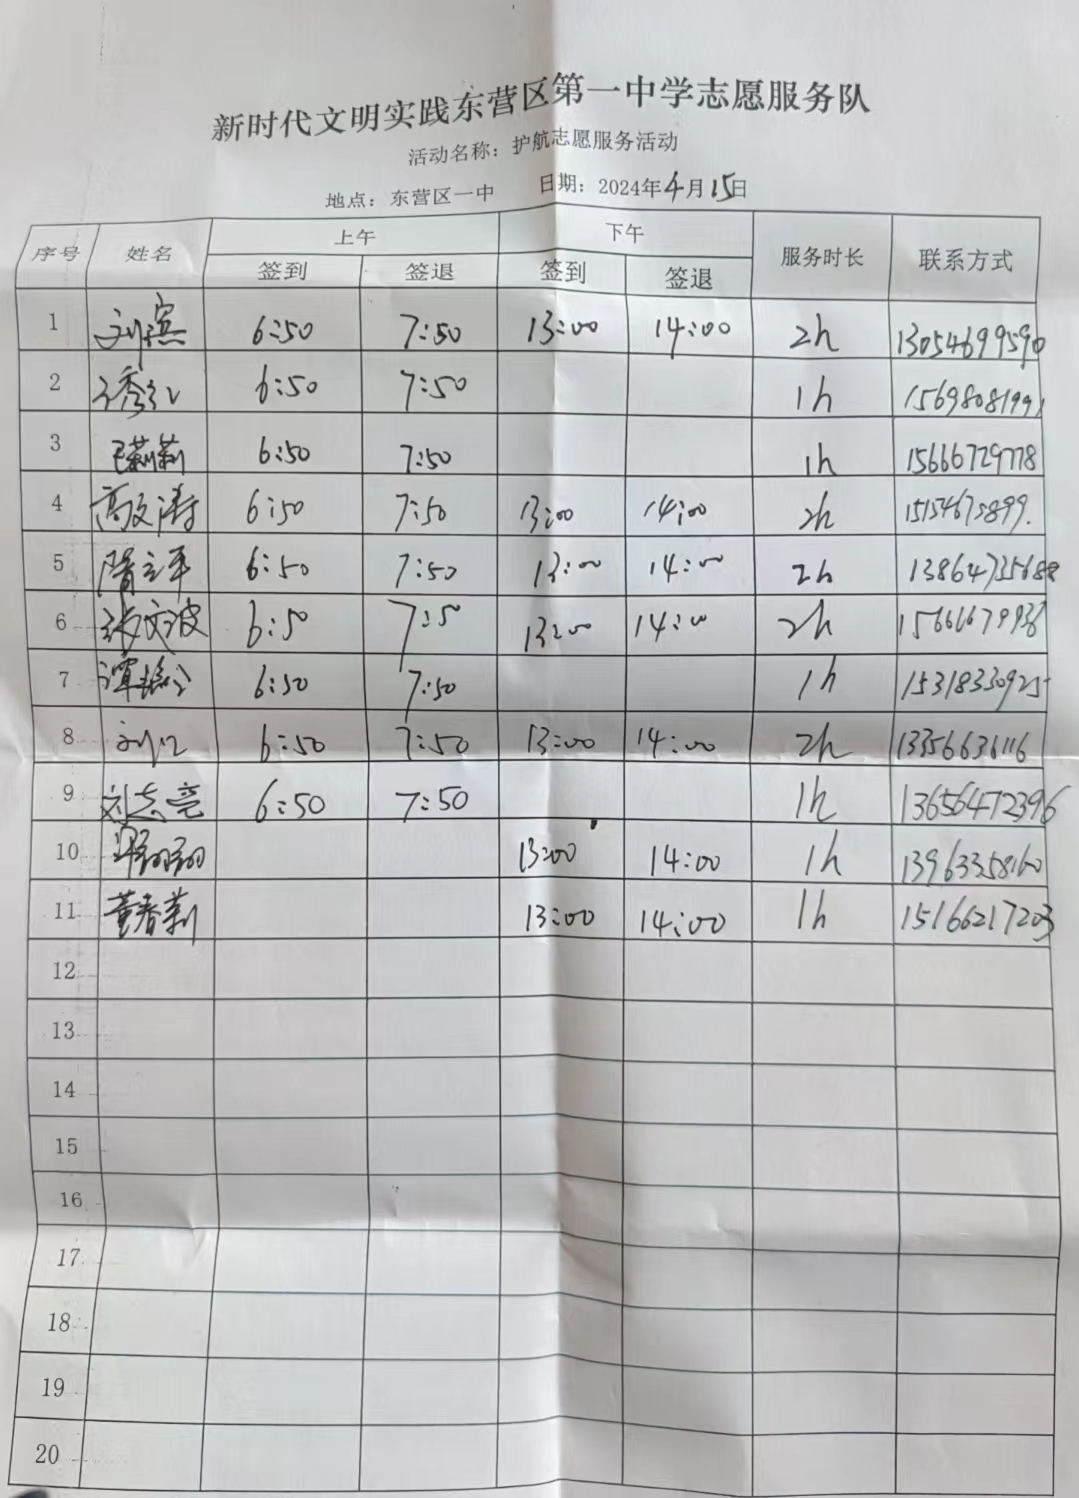 新时代文明实践东营区第一中学志愿服务队
活动名称：护航志愿服务活动
地点：东营区一中 日期：2024年4月15日
序号 姓名 上午 下午 服务时长 联系方式
签到 签退 签到 签退
1 6:50 7:50 13:00 14:00 2h 13054699590
2 6:50 7:50 1h
3 6:50 7:50 1h 15666729778
4 高文涛 6:50 7:50 13:00 14:00 2h
5 隋立军 6:50 7:50 13:00 14:00 2h
6 张文波 6:50 7:5 13:00 14:00 2h
7 6:50 7:50 1h
8 6:50 7:50 13:00 14:00 2h 13356636116
9 刘志亮 6:50 7:50 1h 13656472396
10 13:00 14:00 1h
11 董春莉 13:00 14:00 1h 15166217203
12
13
14
15
16
17
18
19
20